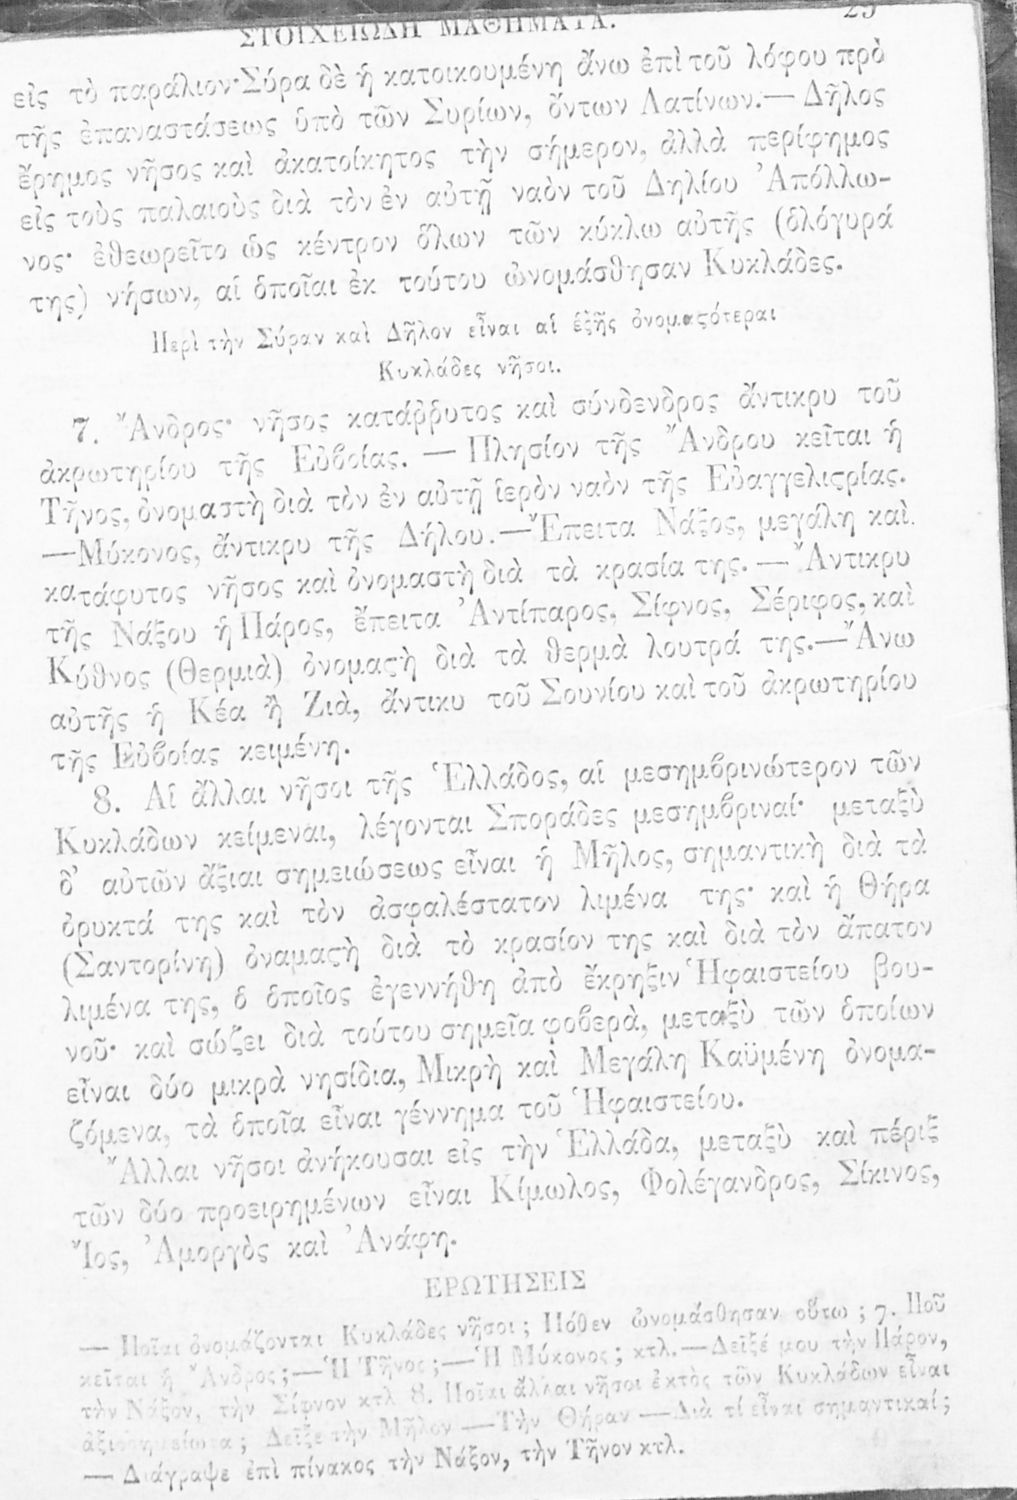 ΣΤΟΙΧΕΙΩΔΗ ΜΑΘΗΜΑΤΑ.
εἰς τὸ παράλιον· Σύρα δὲ ἡ κατοικουμένη ἄνω ἐπὶ τοῦ λόφου πρὸ
τῆς ἐπαναστάσεως ὑπὸ τῶν Συρίων, ὄντων Λατίνων.— Δῆλος
ἔρημος νῆσος καὶ ἀκατοίκητος τὴν σήμερον, ἀλλὰ περίφημος
εἰς τοὺς παλαιοὺς διὰ τὸν ἐν αὐτῇ ναὸν τοῦ Δηλίου Ἀπόλλω-
νος· ἐθεωρεῖτο ὡς κέντρον ὅλων τῶν κύκλω αὐτῆς (ὁλόγυρά
της) νήσων, αἱ ὁποῖαι ἐκ τούτου ὠνομάσθησαν Κυκλάδες.
Περὶ τὴν Σύραν καὶ Δῆλον εἶναι αἱ ἑξῆς ὀνομαϛότεραι
Κυκλάδες νῆσοι.
7. Ἄνδρος· νῆσος κατάῤῥυτος καὶ σύνδενδρος ἄντικρυ τοῦ
ἀκρωτηρίου τῆς Εὐβοίας. — Πλησίον τῆς Ἄνδρου κεῖται ἡ
Τῆνος, ὀνομαστὴ διὰ τὸν ἐν αὐτῇ ἱερὸν ναὸν τῆς Εὐαγγελιϛρίας.
—Μύκονος, ἄντικρυ τῆς Δήλου.—Ἔπειτα Νάξος, μεγάλη καὶ
κατάφυτος νῆσος καὶ ὀνομαστὴ διὰ τὰ κρασία της. — Ἄντικρυ
τῆς Νάξου ἡ Πάρος, ἔπειτα Ἀντίπαρος, Σίφνος, Σέριφος, καὶ
Κύθνος (Θερμιὰ) ὀνομαϛὴ διὰ τὰ θερμὰ λουτρά της.—Ἄνω
αὐτῆς ἡ Κέα ἢ Ζιὰ, ἄντικυ τοῦ Σουνίου καὶ τοῦ ἀκρωτηρίου
τῆς Εὐβοίας κειμένη.
8. Αἱ ἄλλαι νῆσοι τῆς Ἑλλάδος, αἱ μεσημβρινώτερον τῶν
Κυκλάδων κείμεναι, λέγονται Σποράδες μεσημβριναί· μεταξὺ
δ’ αὐτῶν ἄξιαι σημειώσεως εἶναι ἡ Μῆλος, σημαντικὴ διὰ τὰ
ὀρυκτά της καὶ τὸν ἀσφαλέστατον λιμένα της· καὶ ἡ Θήρα
(Σαντορίνη) ὀναμαϛὴ διὰ τὸ κρασίον της καὶ διὰ τὸν ἄπατον
λιμένα της, ὁ ὁποῖος ἐγεννήθη ἀπὸ ἔκρηξιν Ἡφαιστείου βου-
νοῦ· καὶ σώζει διὰ τούτου σημεῖα φοβερὰ, μεταξὺ τῶν ὁποίων
εἶναι δύο μικρὰ νησίδια, Μικρὴ καὶ Μεγάλη Καϋμένη ὀνομα-
ζόμενα, τὰ ὁποῖα εἶναι γέννημα τοῦ Ἡφαιστείου.
Ἄλλαι νῆσοι ἀνήκουσαι εἰς τὴν Ἑλλάδα, μεταξὺ καὶ πέριξ
τῶν δύο προειρημένων εἶναι Κίμωλος, Φολέγανδρος, Σίκινος,
Ἴος, Ἀμοργὸς καὶ Ἀνάφη.
ΕΡΩΤΗΣΕΙΣ
— Ποῖαι ὀνομάζονται Κυκλάδες νῆσοι; Πόθεν ὠνομάσθησαν οὕτω; 7. Ποῦ
κεῖται ἡ Ἄνδρος;—Ἡ Τῆνος;—Ἡ Μύκονος; κτλ.—Δεῖξέ μου τὴν Πάρον,
τὴν Νάξον, τὴν Σίφνον κτλ 8. Ποῖαι ἄλλαι νῆσοι ἐκτὸς τῶν Κυκλάδων εἶναι
ἀξιοσημείωτα; Δεῖξε τὴν Μῆλον —Τὴν Θήραν —Διὰ τί εἶναι σημαντικαί;
— Διάγραψε ἐπὶ πίνακος τὴν Νάξον, τὴν Τῆνον κτλ.